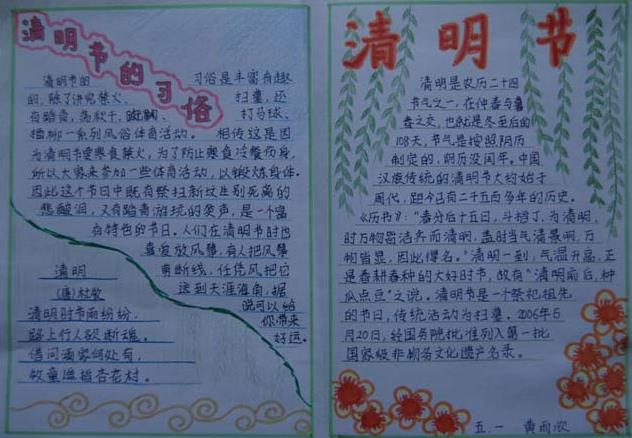 清明节的习俗
清明节的 习俗是丰富有趣
的,除了讲究禁火、 扫墓,还
有踏青、荡秋千、蹴鞠、 打马球、
插柳一系列风俗体育活动。 相传这是因
为清明节要寒食禁火,为了防止寒食冷餐伤身,
所以大家来参加一些体育活动,以锻炼身体。
因此这个节日中既有祭扫新坟生别死离的
悲酸泪,又有踏青游玩的笑声,是一个富
有特色的节日。人们在清明节时也
喜爱放风筝,有人把风筝
剪断线,任凭风把它
送到天涯海角,据
说可以给
你带来
好运。
清明
(唐)杜牧
清明时节雨纷纷,
路上行人欲断魂。
借问酒家何处有,
牧童遥指杏花村。
清明节
清明是农历二十四
节气之一,在仲春与暮
春之交,也就是冬至后的
108天,节气是按照阴历
制定的,阴历没闰年。中国
汉族传统的清明节大约始于
周代,距今已有二千五百多年的历史。
《历书》:“春分后十五日,斗指丁,为清明,
时万物皆洁齐而清明,盖时当气清景明,万
物皆显,因此得名。”清明一到,气温升高,正
是春耕春种的大好时节,故有“清明前后,种
瓜点豆”之说。清明节是一个祭祀祖先
的节日,传统活动为扫墓。2006年5
月20日,经国务院批准列入第一批
国家级非物质文化遗产名录。
五一 黄雨欣